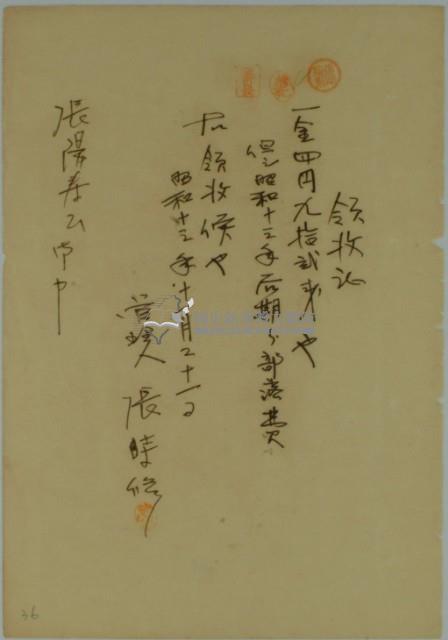 領收証
一金四円九拾弐銭也
但シ昭和十三年后期分部落費
右領收候也
昭和十三年十月二十一日
張時
張陽春公御中
36